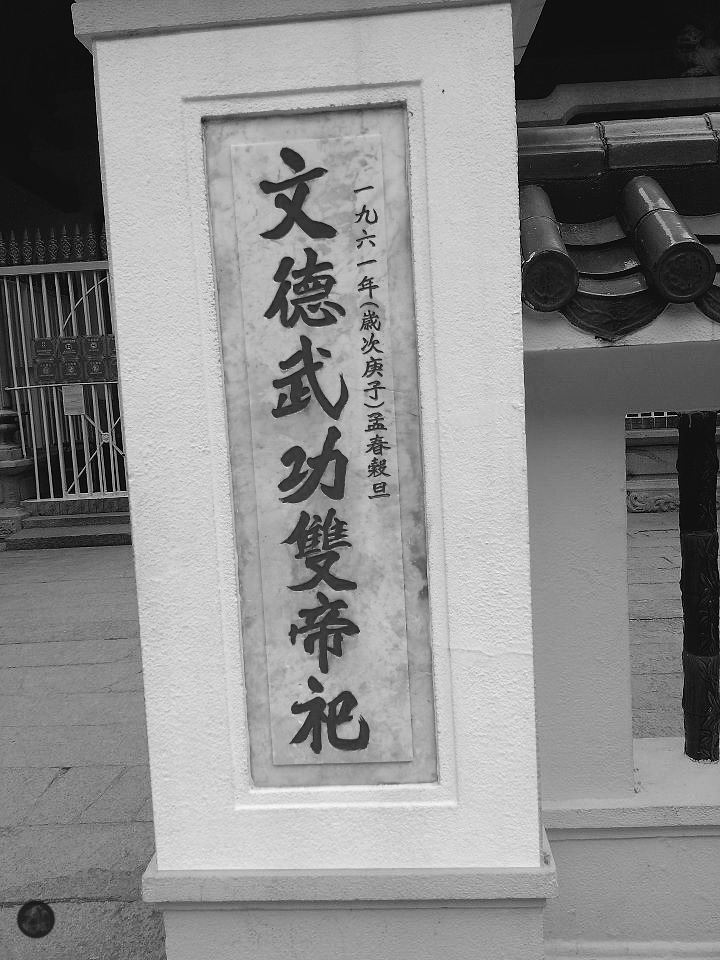 一九六一年(歳次庚子)孟春穀旦
文德武功雙帝祀